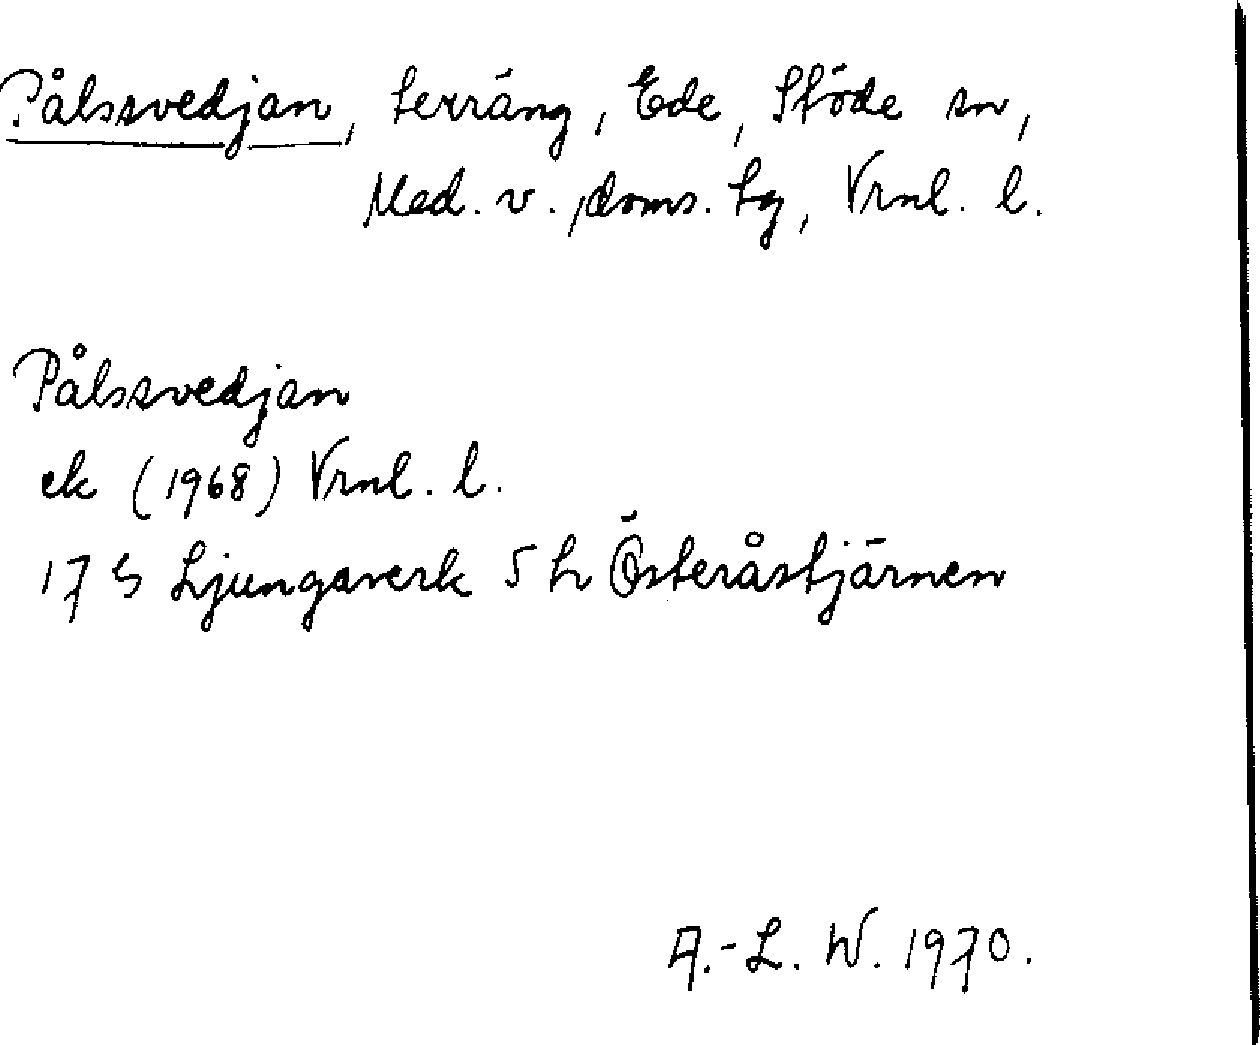 Pålssvedjan, terräng, Ede, Stöde sn,
Med. v., doms. tg, Vrnl. l.
Pålssvedjan
ek (1968) Vrnl. l.
17 S Ljungaverk 5 h Österåstjärnen
A.-L. W. 1970.